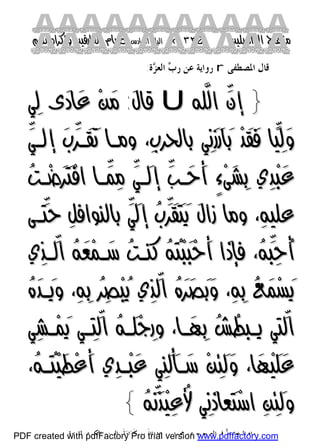 قال المصطفى r رواية عن ربِّ العزَّة:
{ إِنَّ اللَّهَ U قالَ: مَنْ عَادَى لِي
وَلِيًّا فَقَدْ بَارَزَنِي بالحربِ، وما تَقَرَّبَ إِلَيَّ
عَبْدِي بِشَيْءٍ أَحَبَّ إِلَيَّ مِمَّا افْتَرَضْتُ
عليهِ، وما زالَ يَتَقَرَّبُ إِلَيَّ بالنوافلِ حَتَّى
أُحِبَّهُ، فإِذا أَحْبَبْتُهُ كنتُ سَمْعَهُ الَّذِي
يَسْمَعُ بِهِ، وَبَصَرَهُ الَّذِي يُبْصِرُ بِهِ، وَيَدَهُ
الَّتي يبطُشُ بِهَا، وَرِجْلَهُ الَّتِي يَمْشِي
عَلَيْهَا، وَلَئِنْ سَأَلَنِي عَبْدِي أَعْطَيْتُهُ،
وَلَئِنِ اسْتَعَاذَنِي لأُعِيْذَنَّهُ }
PDF created with pdfFactory Pro trial version www.pdffactory.com